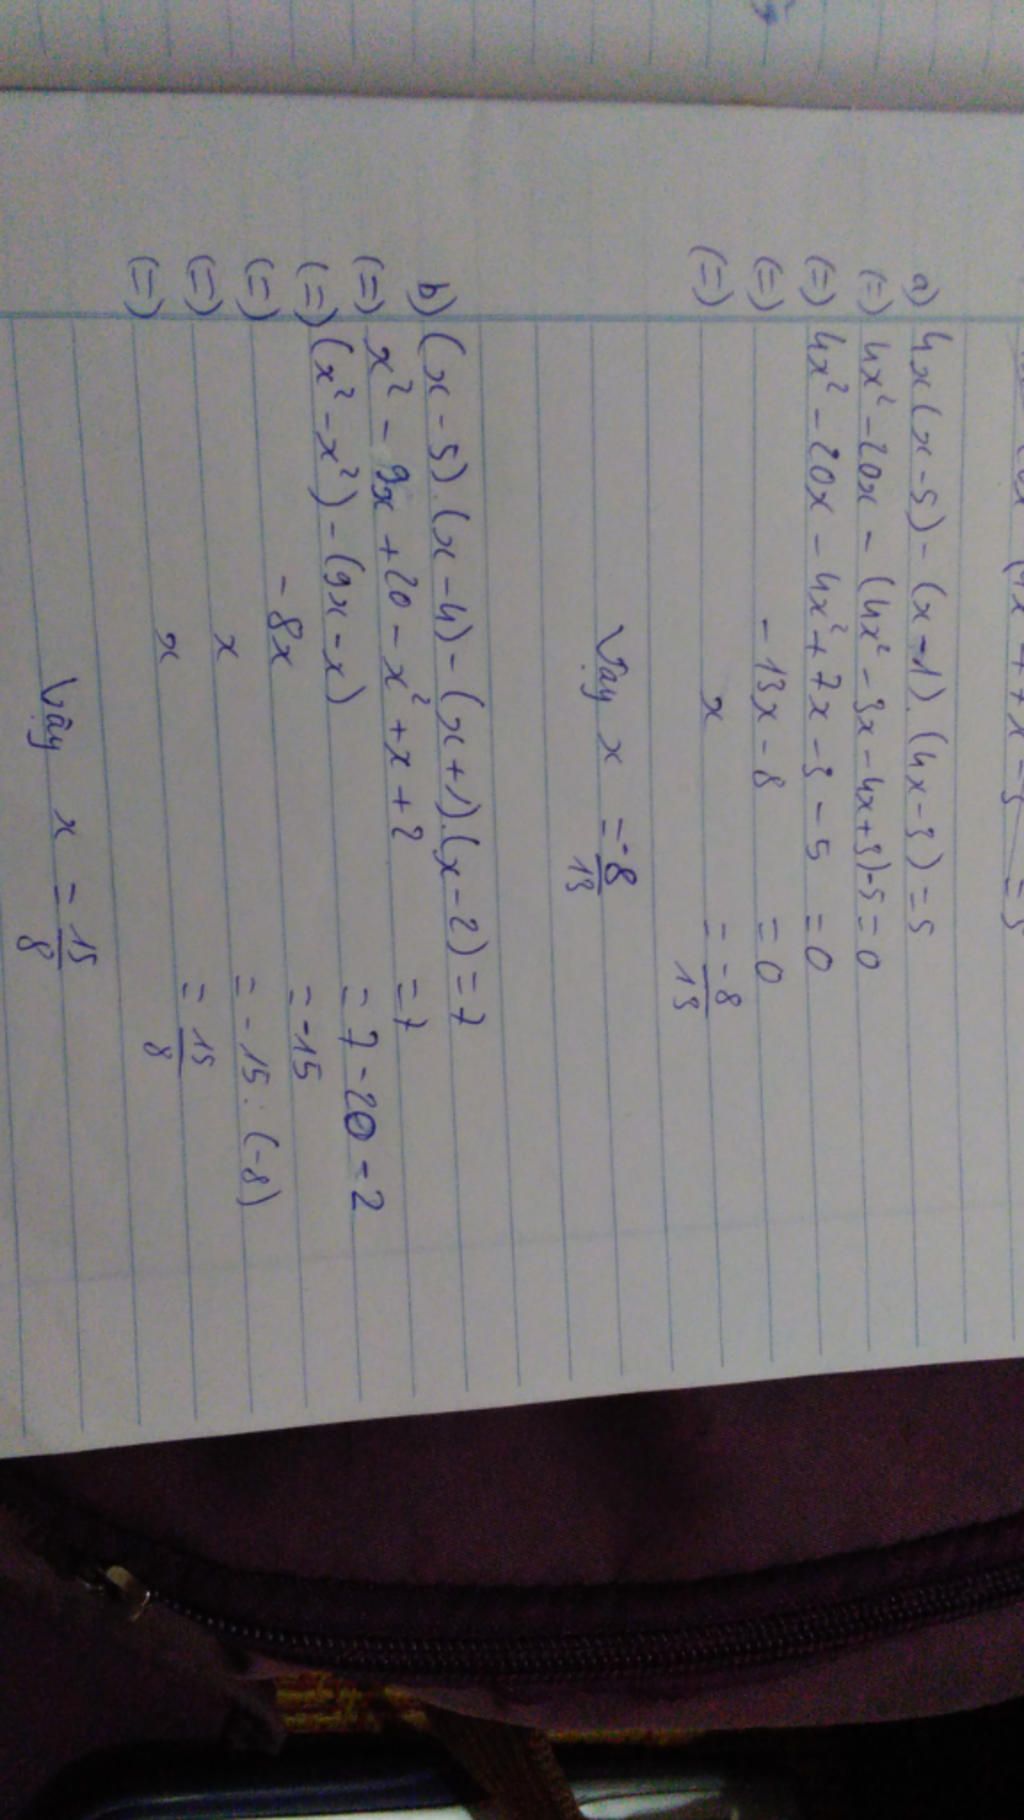 a) 4x(x-5)-(x-1).(4x-3)=5
(=) 4x²-20x-(4x²-3x-4x+3)-5=0
(=) 4x²-20x-4x²+7x-3-5=0
(=) -13x-8=0
(=) x=-8/13
Vậy x=-8/13
b) (x-5).(x-4)-(x+1).(x-2)=7
(=) x²-9x+20-x²+x+2=7
(=) (x²-x²)-(9x-x)=7-20-2
(=) -8x=-15
(=) x=-15:(-8)
(=) x=15/8
Vậy x=15/8